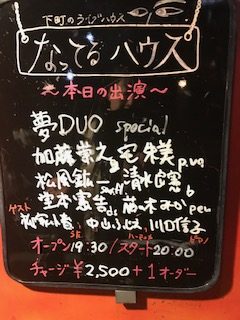 下町のライブハウス
なってるハウス
〜本日の出演〜
夢DUO special
加藤崇之 & 宅朱美 p.vo
松風鉱一 清水良憲 b
宝本憲生 ds 藤ノ木みか per
ゲスト
中山ふじえ 川口信子
オープン19:30/スタート20:00
チャージ¥2,500+1オーダー